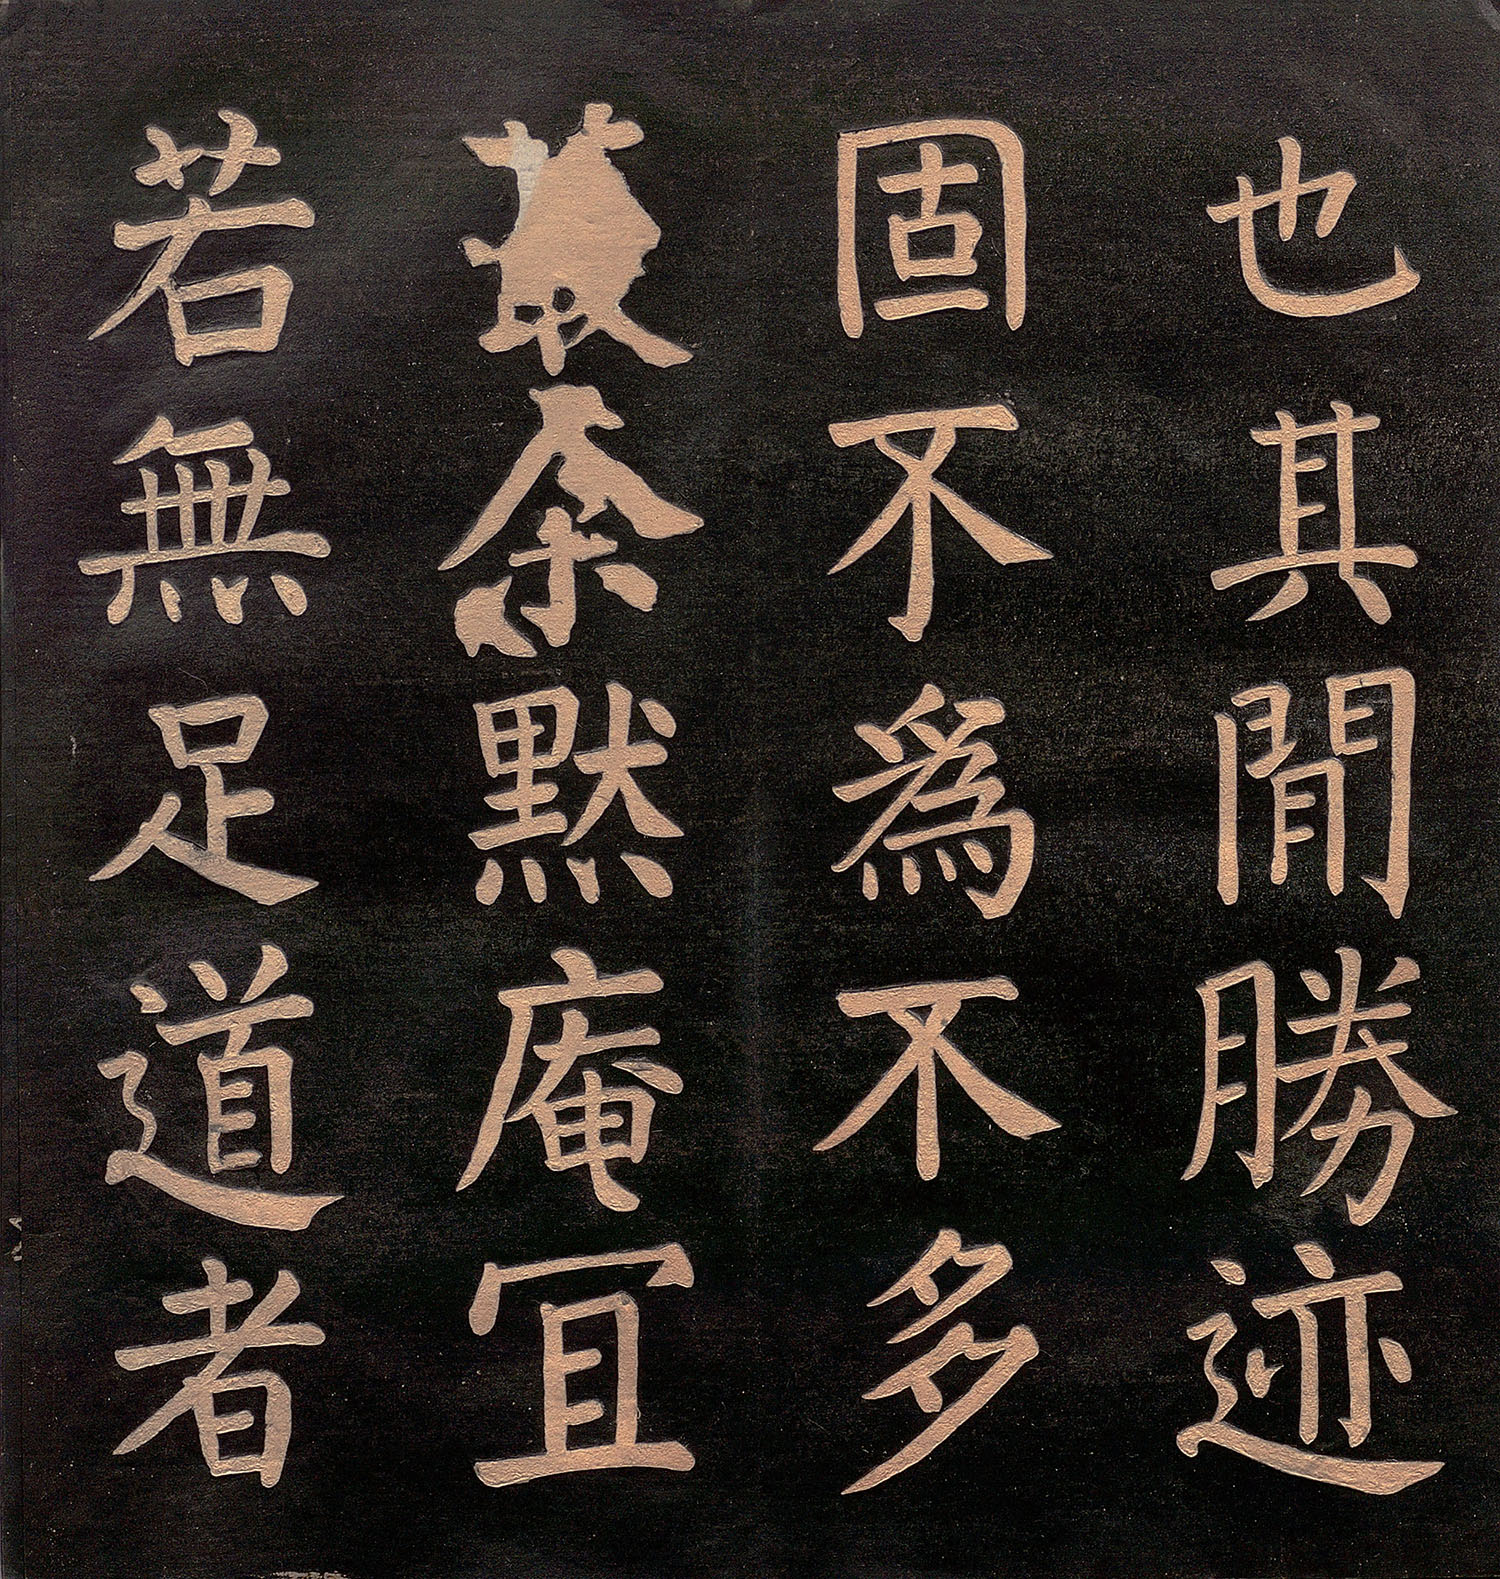 也其閒勝迹
固不爲不多
余默庵冝
若無足道者